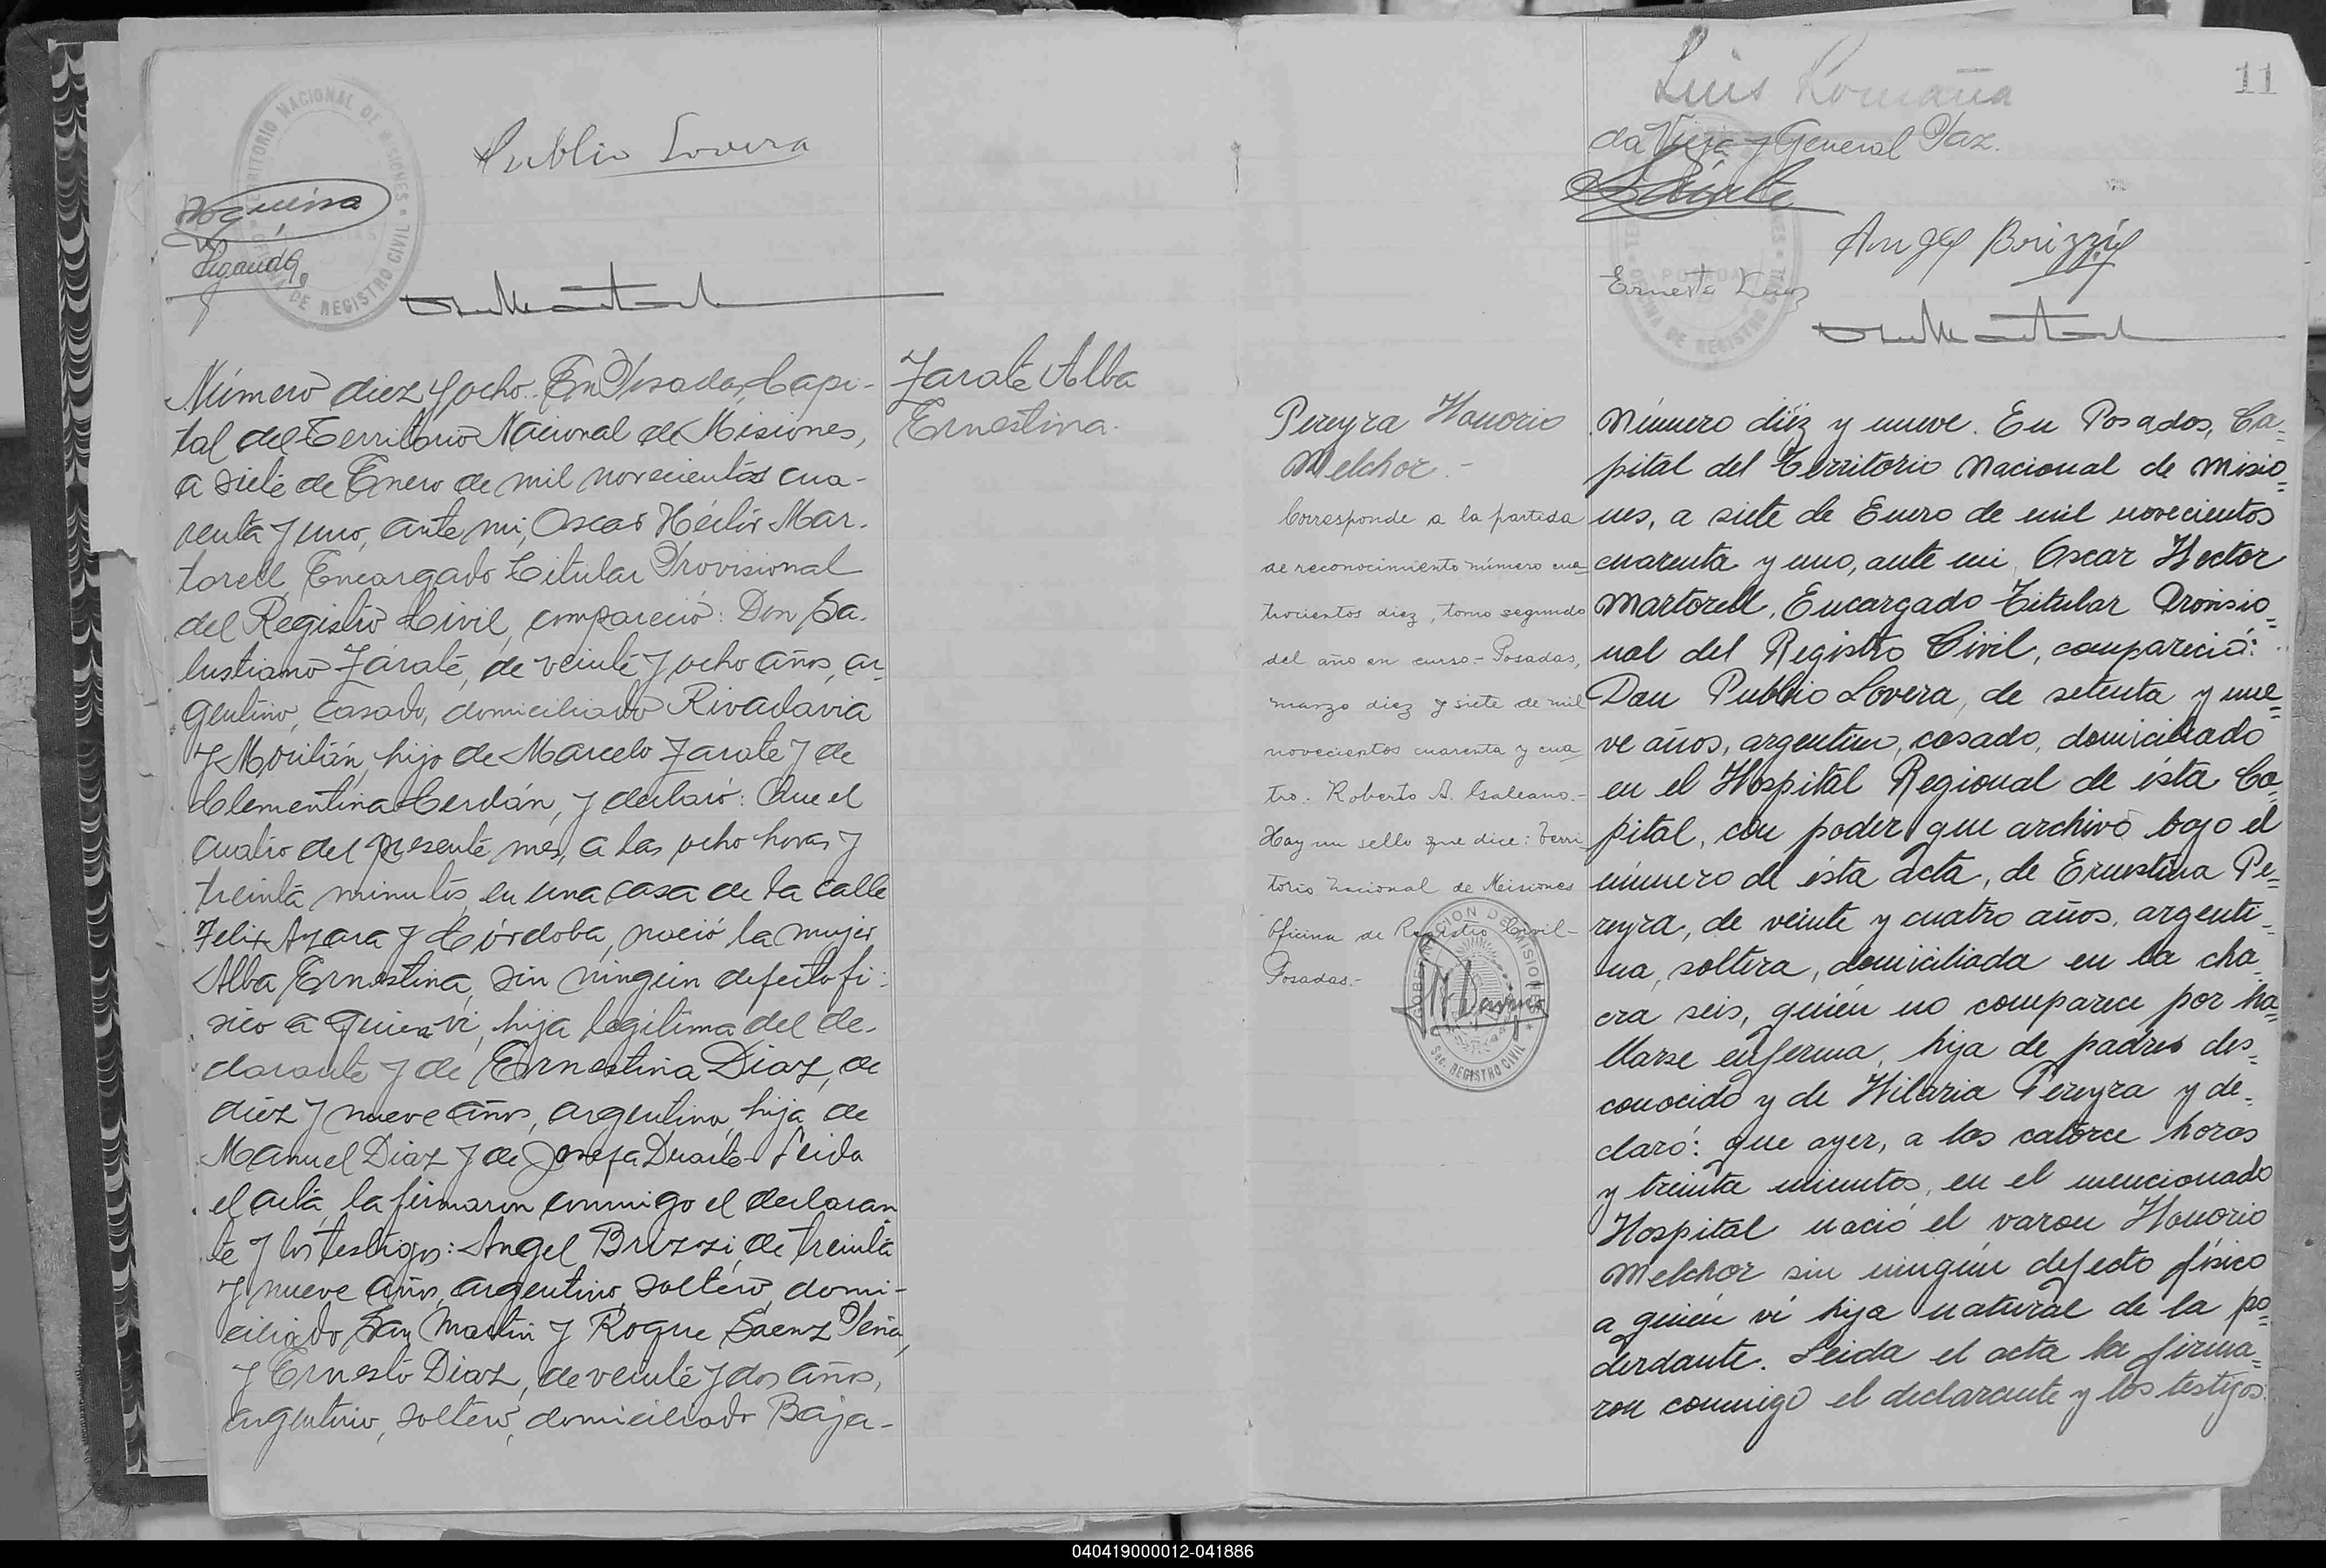 Publio Lovera
TERRITORIO NACIONAL DE MISIONES
OFICINA DE REGISTRO CIVIL
Número diez y ocho. En Posadas, Capi-
tal del Territorio Nacional de Misiones,
a siete de Enero de mil novecientos cua-
renta y uno, ante mi, Oscar Héctor Mar-
torell, Encargado Titular Provisional
del Registro Civil, compareció: Don Sa-
lustiano Zárate, de veinte y ocho años, ar-
gentino, casado, domiciliado Rivadavia
y Moritán, hijo de Marcelo Zarate y de
Clementina Cerdán, y declaró: Que el
cuatro del presente mes, a las ocho horas y
treinta minutos, en una casa de la calle
Felix Azara y Córdoba, nació la mujer
Alba Ernestina, sin ningún defecto fi-
sico a quien ví, hija legítima del de-
clarante y de Ernestina Diaz, de
diez y nueve años, argentina, hija de
Manuel Diaz y de Josefa Duarte. Leida
el acta, la firmaron conmigo el declaran
te y los testigos: Angel Brizzi, de treinta
y nueve años, argentino, soltero, domi-
ciliado San Martín y Roque Saenz Peña,
y Ernesto Diaz, de veinte y dos años,
argentino, soltero, domiciliado Baja-
Zarate Alba
Ernestina.
11
Luis Romaña
da Vieja y General Paz.
Angel Brizzi
Ernesto
Pereyra Honorio
Melchor.-
Corresponde a la partida
de reconocimiento número cua-
trocientos diez, tomo segundo
del año en curso.- Posadas,
marzo diez y siete de mil
novecientos cuarenta y cua-
tro. Roberto A. Galeano.-
Hay un sello que dice: Terri-
torio Nacional de Misiones
Oficina de Registro Civil-
Posadas.-
GOBERNACION DE MISIONES
SEC. REGISTRO CIVIL
Número diéz y nueve. En Posadas, Ca=
pital del Territorio Nacional de Misio=
nes, a siete de Enero de mil novecientos
cuarenta y uno, ante mi, Oscar Hector
Martorell, Encargado Titular Provisio=
nal del Registro Civil, compareció:
Don Publio Lovera, de setenta y nue=
ve años, argentino, casado, domiciliado
en el Hospital Regional de ésta Ca=
pital, con poder que archivo bajo el
número de ésta acta, de Ernestina Pe=
reyra, de veinte y cuatro años, argenti=
na, soltera, domiciliada en la cha=
cra seis, quién no comparece por ha=
llarse enferma, hija de padres des=
conocido y de Hilaria Pereyra y de=
claró: que ayer, a las catorce horas
y treinta minutos, en el mencionado
Hospital nació el varon Honorio
Melchor sin ningún defecto físico
a quién ví hijo natural de la po=
derdante. Leida el acta la firma=
ron conmigo el declarante y los testigos
040419000012-041886